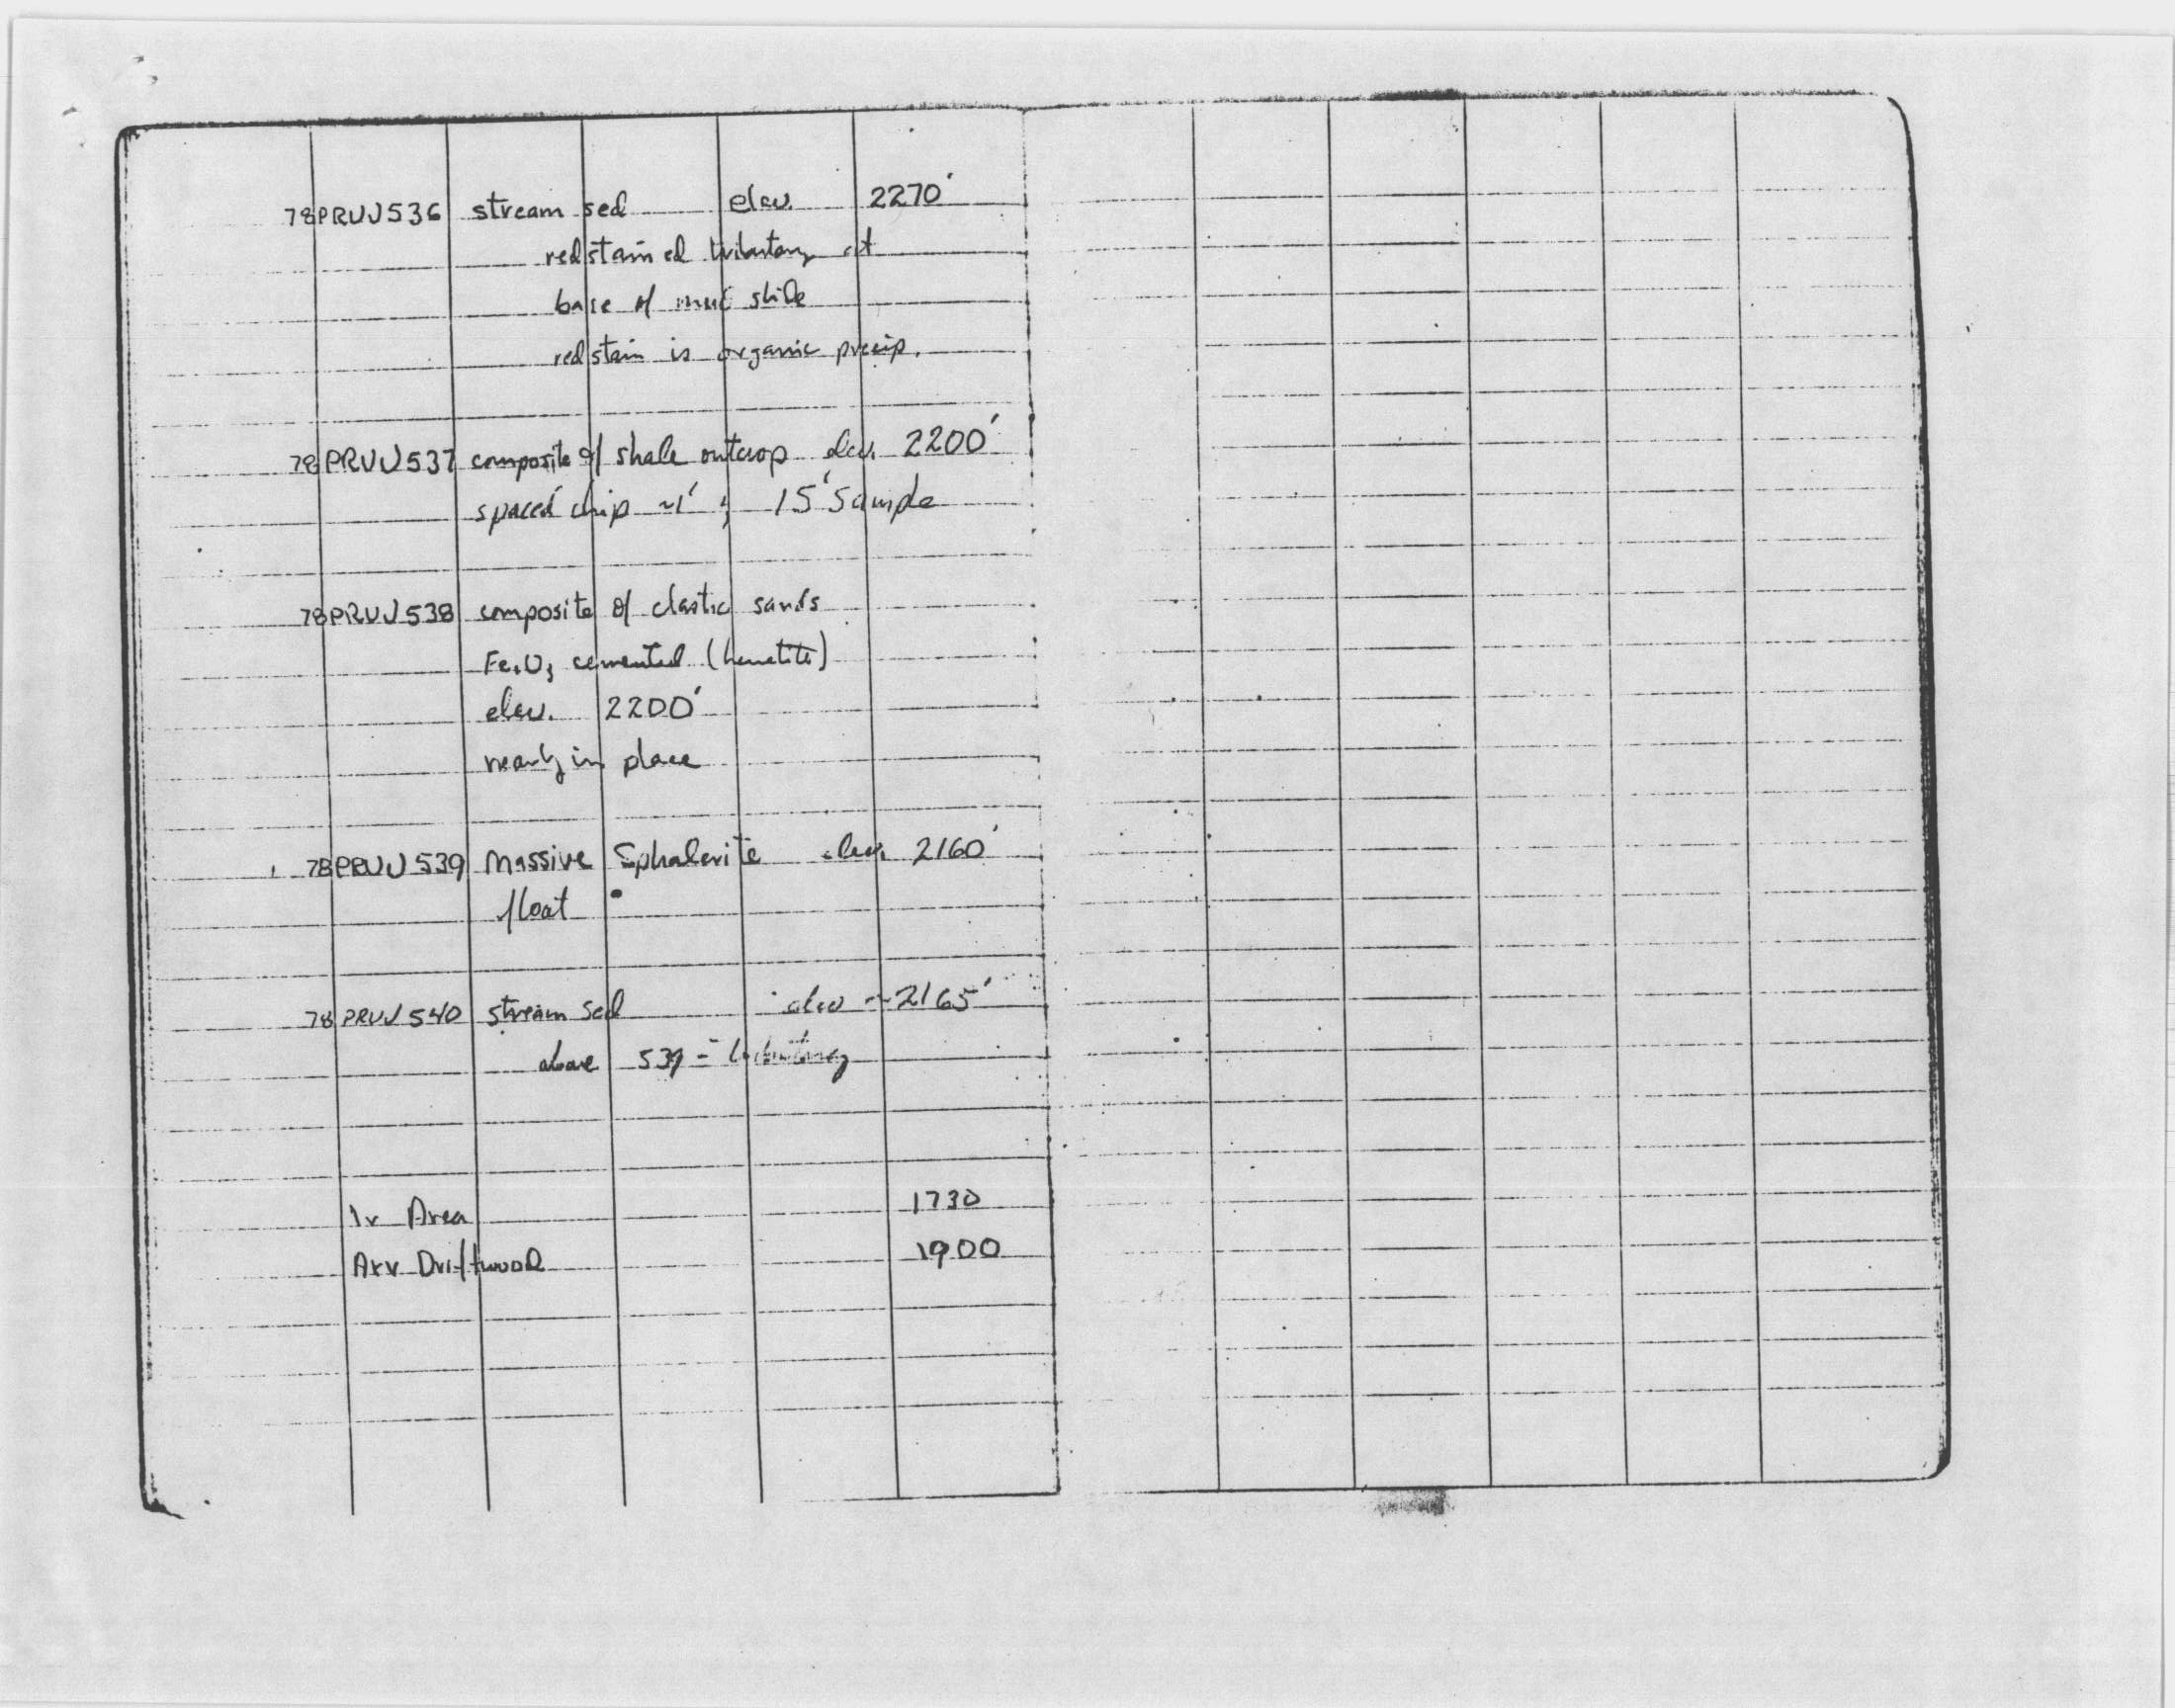 78PRUJ536 stream sed elev. 2270'
redstained tributary at
base of mud slide
redstain is organic precip.
78PRUJ537 composite of shale outcrop elev. 2200'
spaced chip ~1' ; 15' Sample
78PRUJ538 composite of clastic sands
Fe2O3 cemented (hematite)
elev. 2200'
nearly in place
78PRUJ539 Massive Sphalerite elev. 2160'
float
78PRUJ540 stream sed elev ~2165'
above 539 - tributary
lv Area 1730
Arv Driftwood 1900